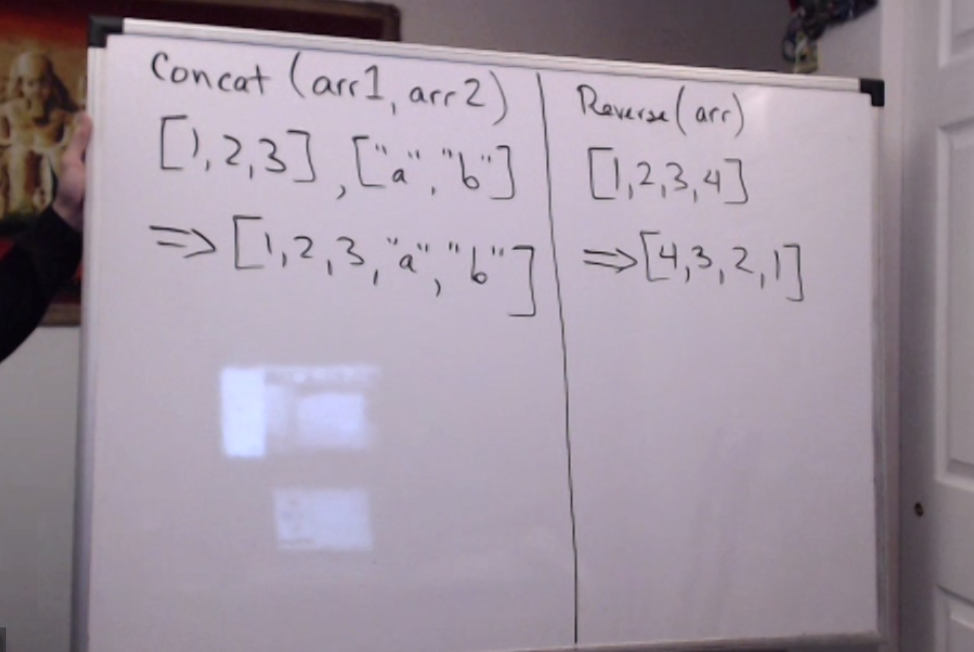 Concat (arr1, arr2)
[1,2,3], ["a","b"]
=> [1,2,3,"a","b"]
Reverse(arr)
[1,2,3,4]
=> [4,3,2,1]